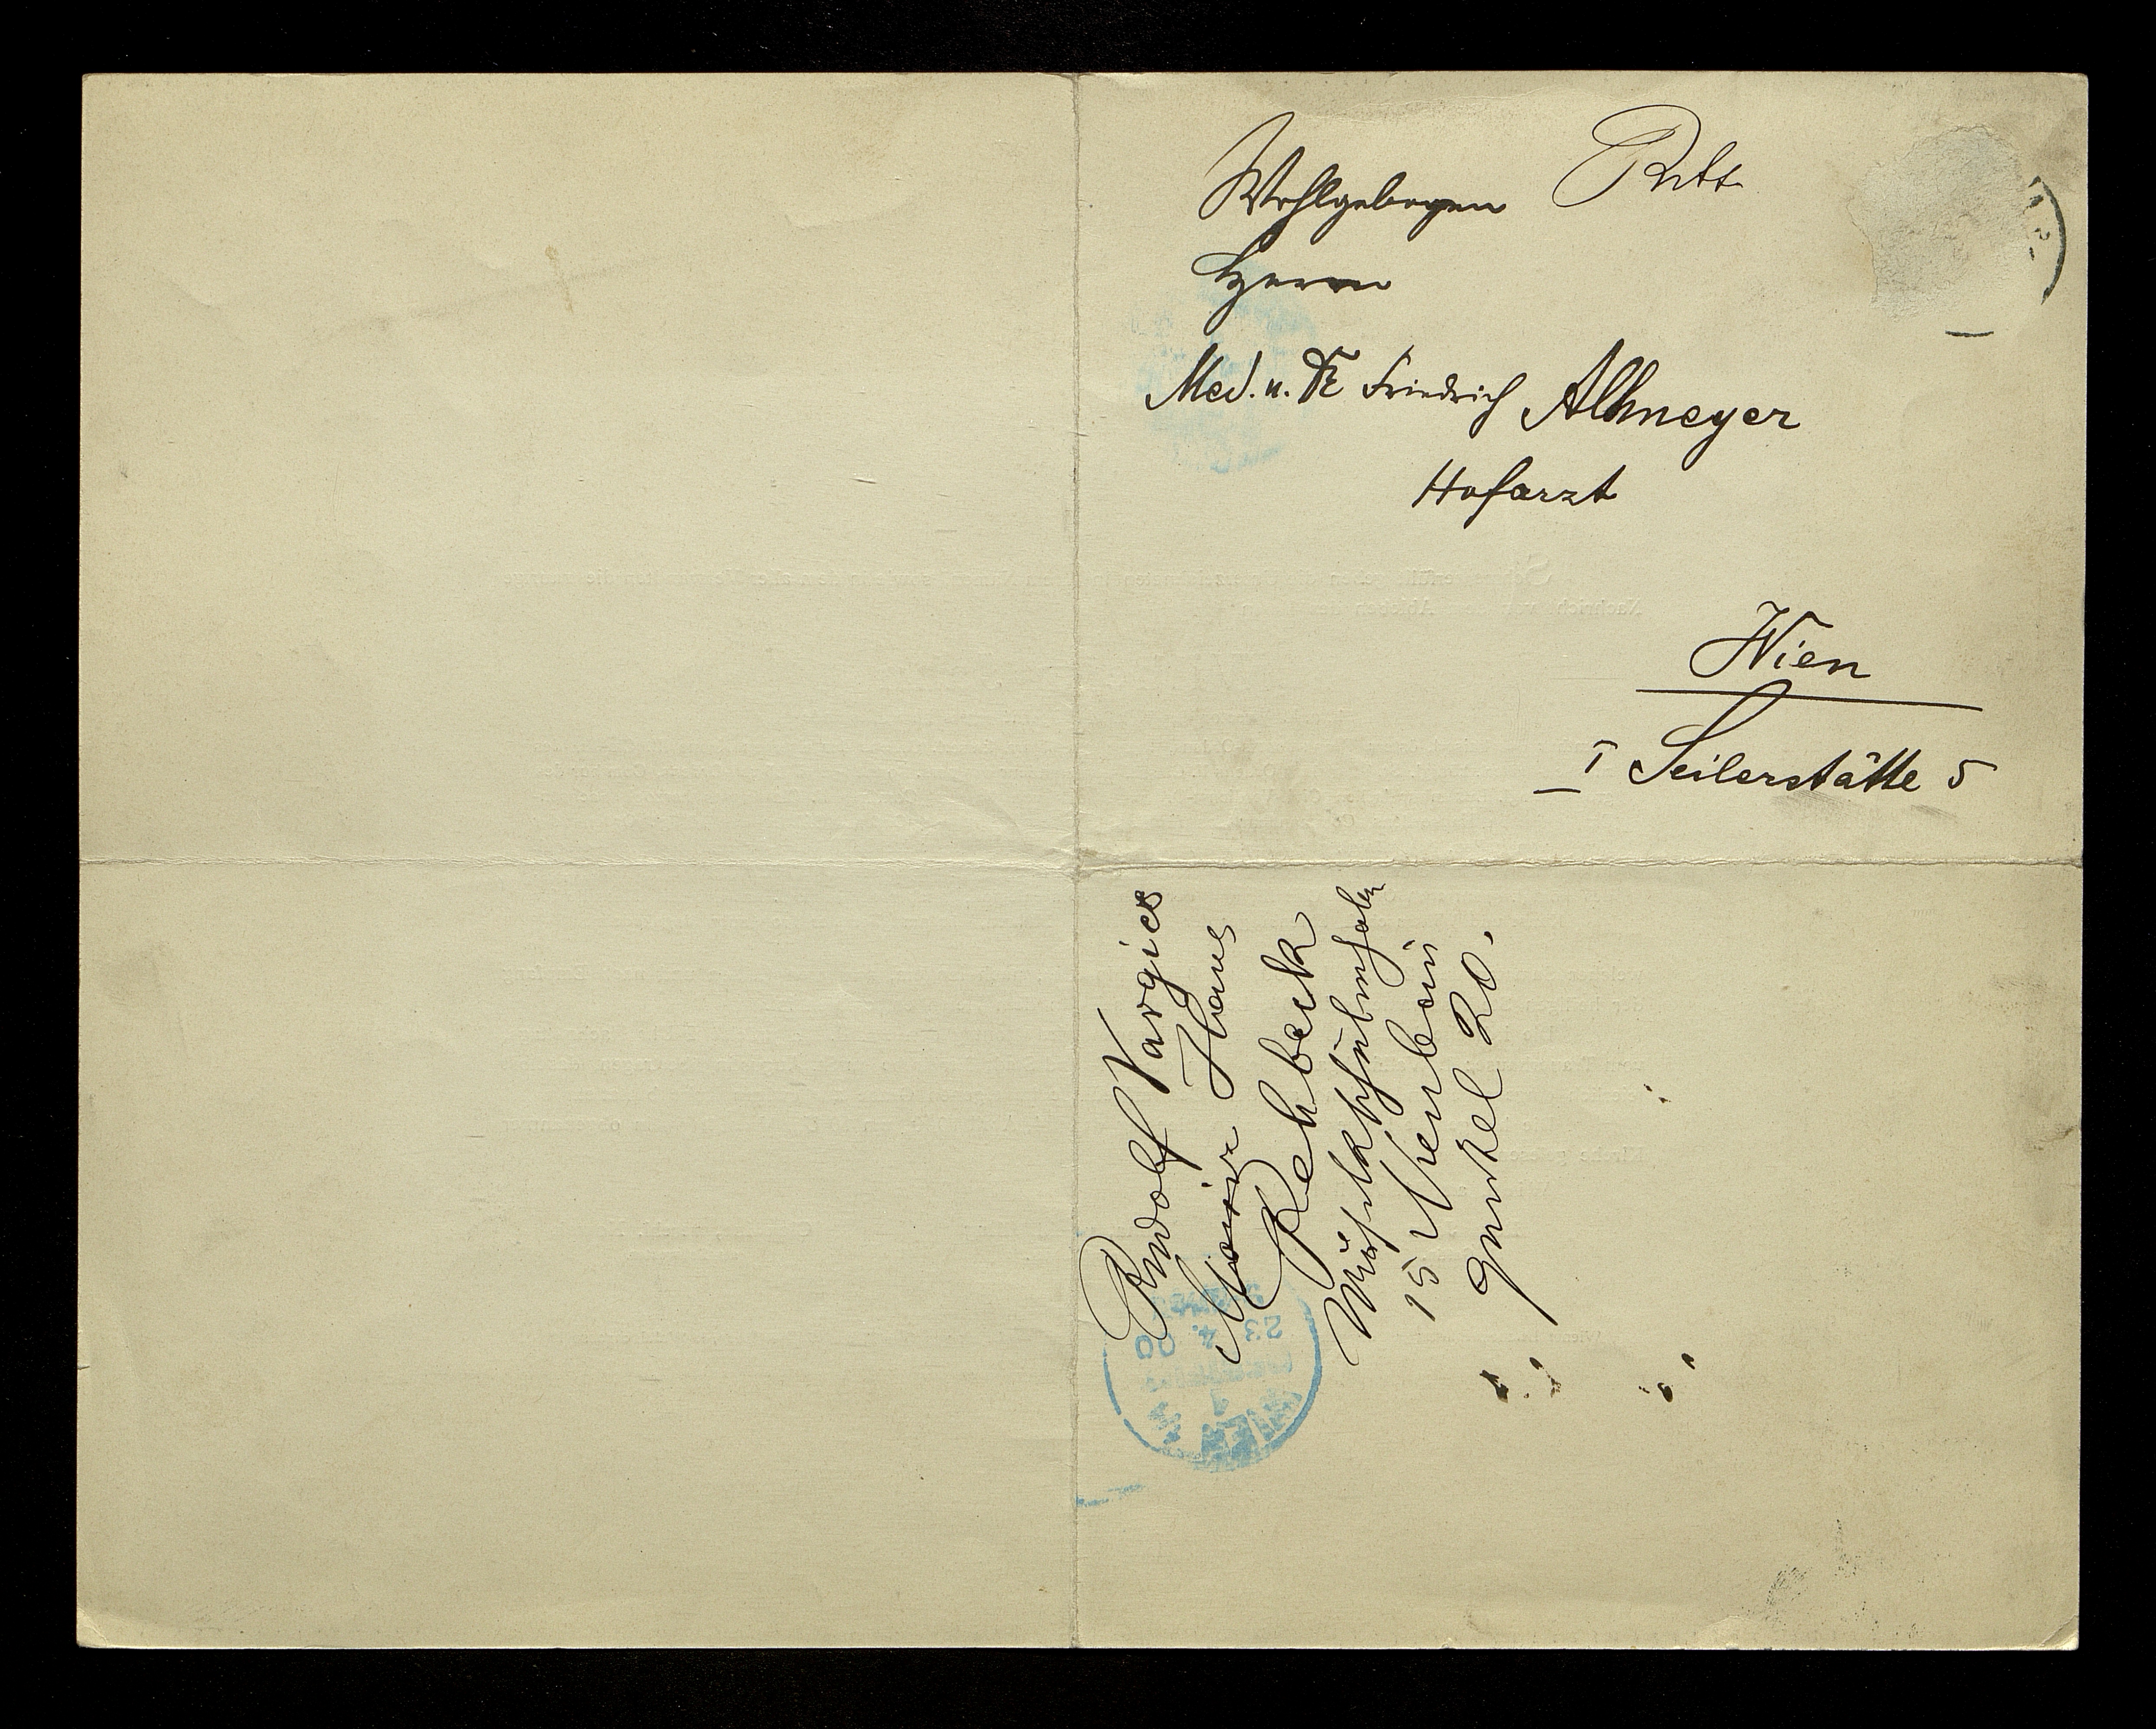 Wohlgeboren Ritt
Herrn
Med. u. Dr Friedrich Allmeyer
Hofarzt
Wien
I Seilerstätte 5
Rudolf Vargics
Maier Hans
Rehbeck
15 Neubau
Gürtel 20.
WIEN
1
23. 4. 00